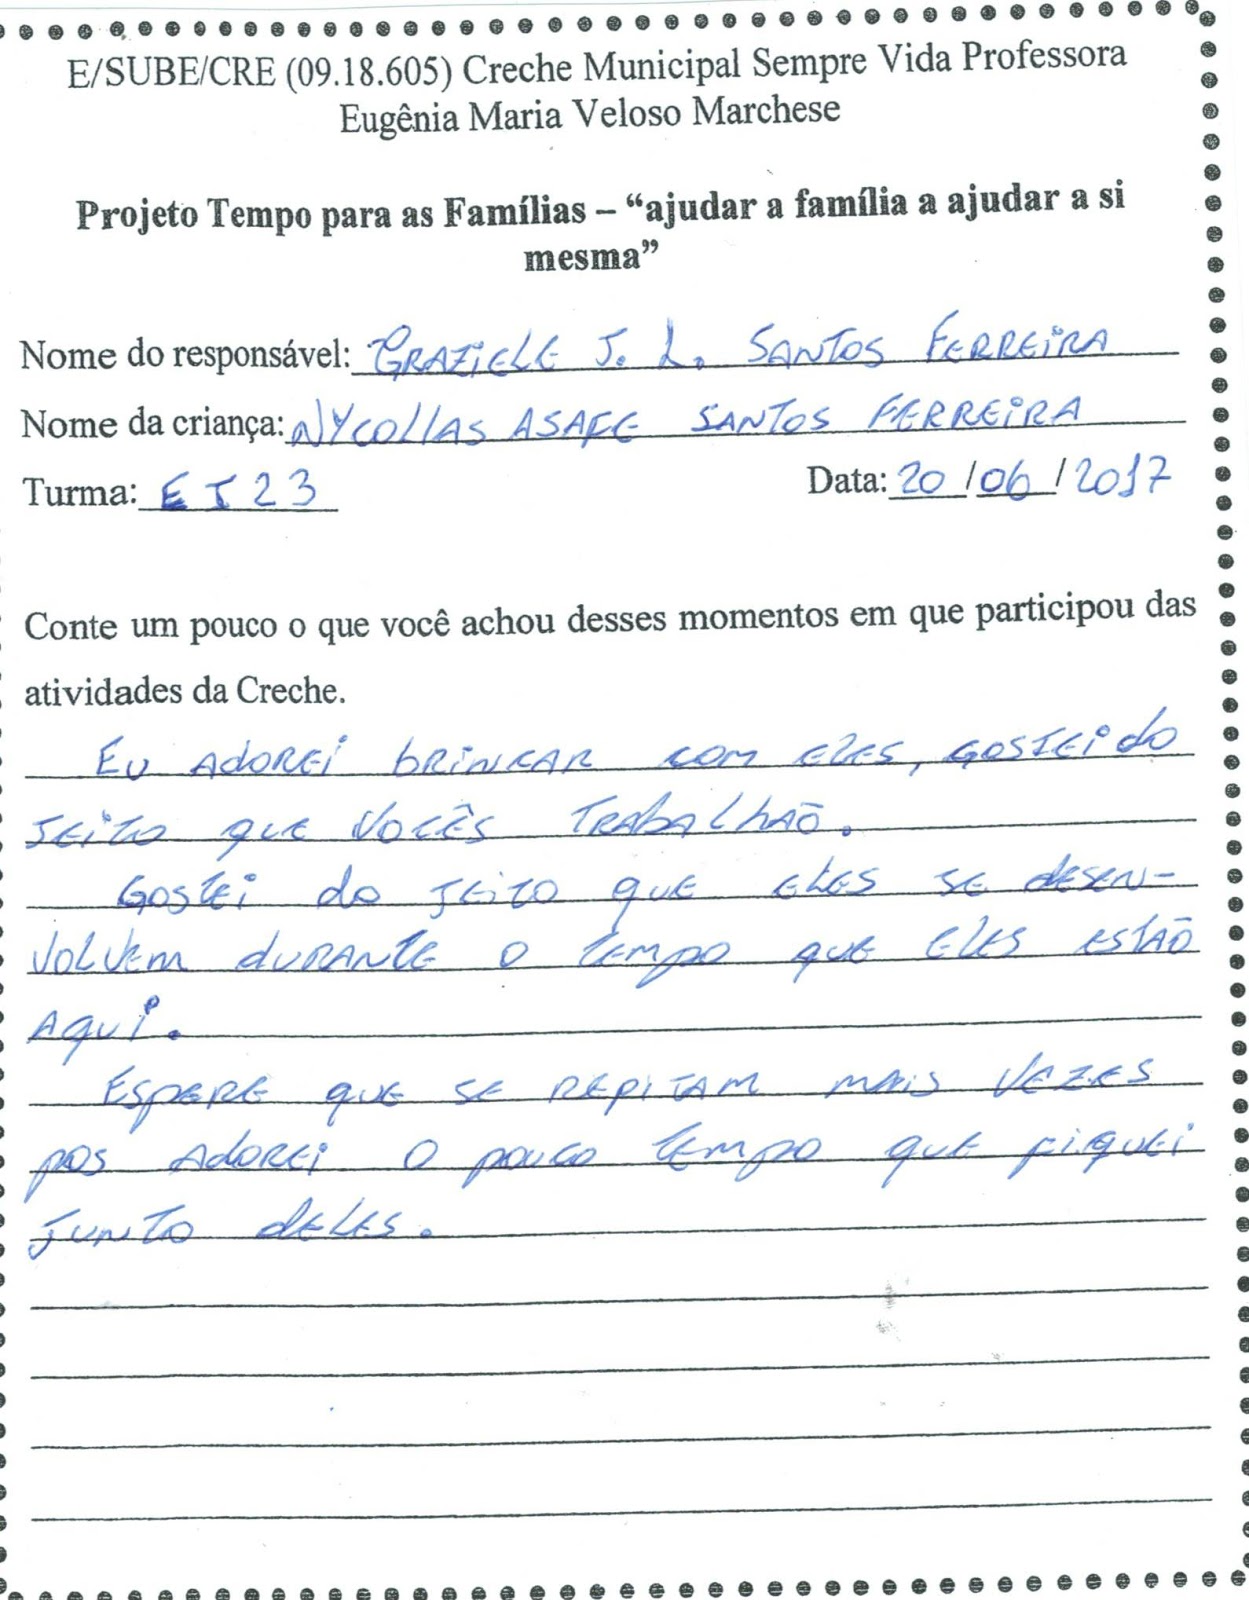 E/SUBE/CRE (09.18.605) Creche Municipal Sempre Vida Professora
Eugênia Maria Veloso Marchese
Projeto Tempo para as Famílias – “ajudar a família a ajudar a si
mesma”
Nome do responsável: GRAZIELE J. L. SANTOS FERREIRA
Nome da criança: NYCOLLAS ASAFE SANTOS FERREIRA
Turma: EI23 Data: 20/06/2017
Conte um pouco o que você achou desses momentos em que participou das
atividades da Creche.
EU ADOREI BRINCAR COM ELES, GOSTEI do
JEITO QUE VOCÊS TRABALHÃO.
GOSTEI do JEITO QUE ELES SE DESEN-
VOLVEM DURANTE O TEMPO QUE ELES ESTÃO
AQUI.
ESPERE QUE SE REPITAM MAIS VEZES
POS ADOREI O POUCO TEMPO QUE FIQUEI
JUNTO DELES.